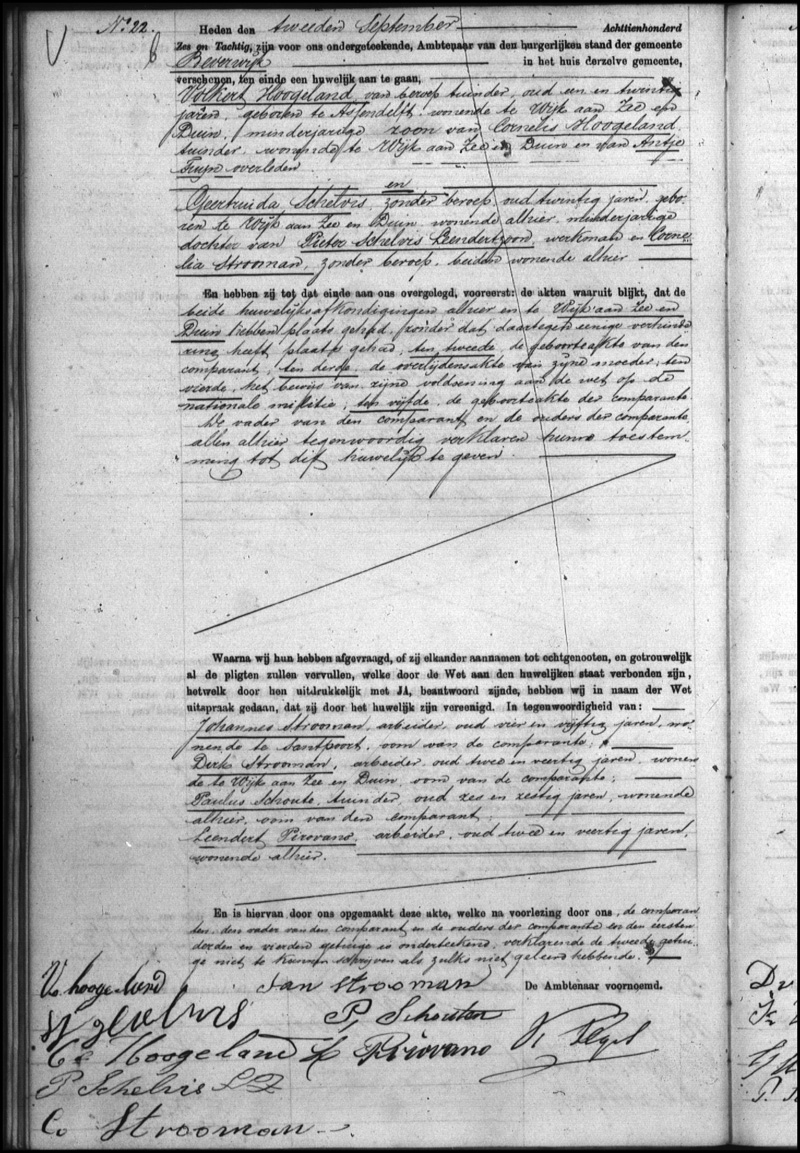 No 22.
Heden den tweeden September Achttienhonderd
Zes en Tachtig, zijn voor ons ondergeteekende, Ambtenaar van den burgerlijken stand der gemeente
Beverwijk in het huis derzelve gemeente,
verschenen, ten einde een huwelijk aan te gaan,
Volkert Hoogeland, van beroep tuinder, oud een en twintig
jaren, geboren te Assendelft, wonende te Wijk aan Zee en
Duin, minderjarige zoon van Cornelis Hoogeland,
tuinder, wonende te Wijk aan Zee en Duin en van Antje
overleden
en
Geertruida Schelvis, zonder beroep, oud twintig jaren, gebo-
ren te Wijk aan Zee en Duin, wonende alhier, minderjarige
dochter van Pieter Schelvis Leendertzoon, werkman en Corne-
lia Strooman, zonder beroep, beiden wonende alhier
En hebben zij tot dat einde aan ons overgelegd, vooreerst: de akten waaruit blijkt, dat de
beide huwelijksafkondigingen alhier en te Wijk aan Zee en
Duin hebben plaats gehad, zonder dat daartegen eenige verhinde
ring heeft plaats gehad; ten tweede, de geboorteakte van den
comparant; ten derde, de overlijdensakte van zijne moeder; ten
vierde, het bewijs van zijne voldoening aan de wet op de
nationale militie; ten vijfde, de geboorteakte der comparante.
De vader van den comparant en de ouders der comparante,
allen alhier tegenwoordig verklaren hunne toestem-
ming tot dit huwelijk te geven.
Waarna wij hun hebben afgevraagd, of zij elkander aannamen tot echtgenooten, en getrouwelijk
al de pligten zullen vervullen, welke door de Wet aan den huwelijken staat verbonden zijn,
hetwelk door hen uitdrukkelijk met JA, beantwoord zijnde, hebben wij in naam der Wet
uitspraak gedaan, dat zij door het huwelijk zijn vereenigd. In tegenwoordigheid van:
Johannes Strooman, arbeider, oud vier en vijftig jaren, wo-
nende te Santpoort, oom van de comparante;
Dirk Strooman, arbeider, oud twee en veertig jaren, wonen
de te Wijk aan Zee en Duin, oom van de comparante;
Paulus Schoute, tuinder, oud zes en zestig jaren, wonende
alhier, oom van den comparant;
Leendert Pirovano, arbeider, oud twee en veertig jaren,
wonende alhier.
En is hiervan door ons opgemaakt deze akte, welke na voorlezing door ons, de comparan
ten, den vader van den comparant en de ouders der comparante en den eersten
derden en vierden getuige is onderteekend, verklarende de tweede getui-
ge niet te kunnen schrijven als zulks niet geleerd hebbende.
V. hoogeland Jan Strooman De Ambtenaar voornoemd.
P. Schouten
Cs Hoogeland L Pirovano
P Schelvis LZ
Co Strooman